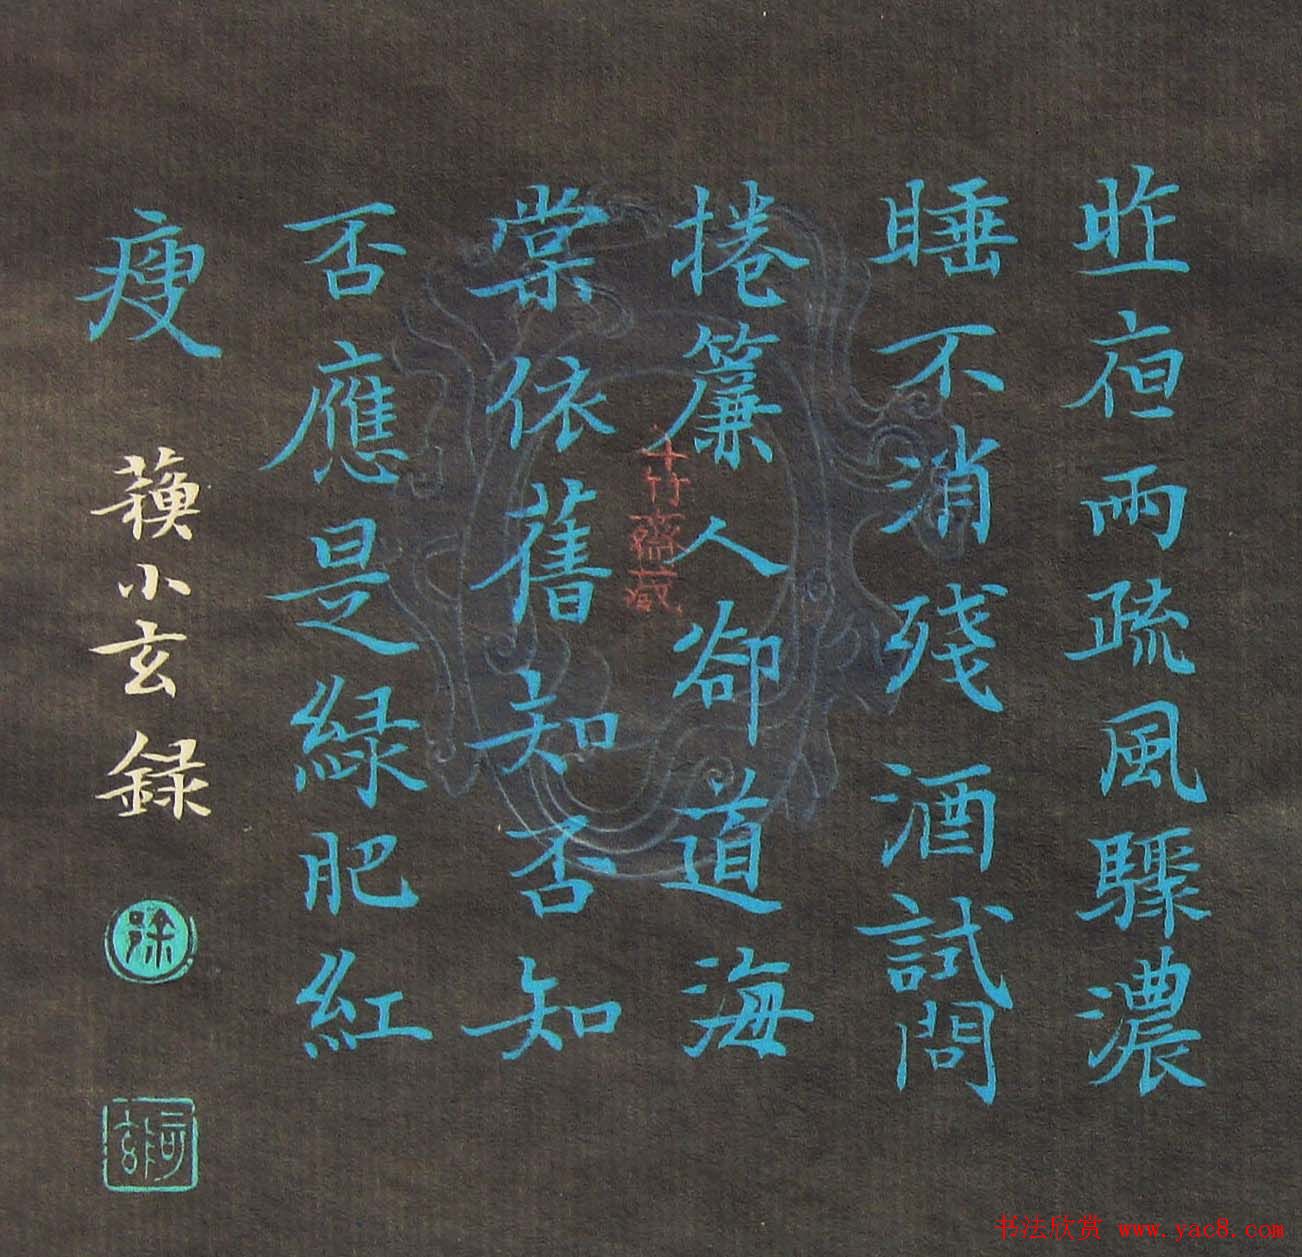 昨夜雨疏風驟濃
睡不消殘酒試問
捲簾人卻道海
棠依舊知否知
否應是綠肥紅
瘦
蘓小玄録
徐
竹齋藏
书法欣赏 www.yac8.com